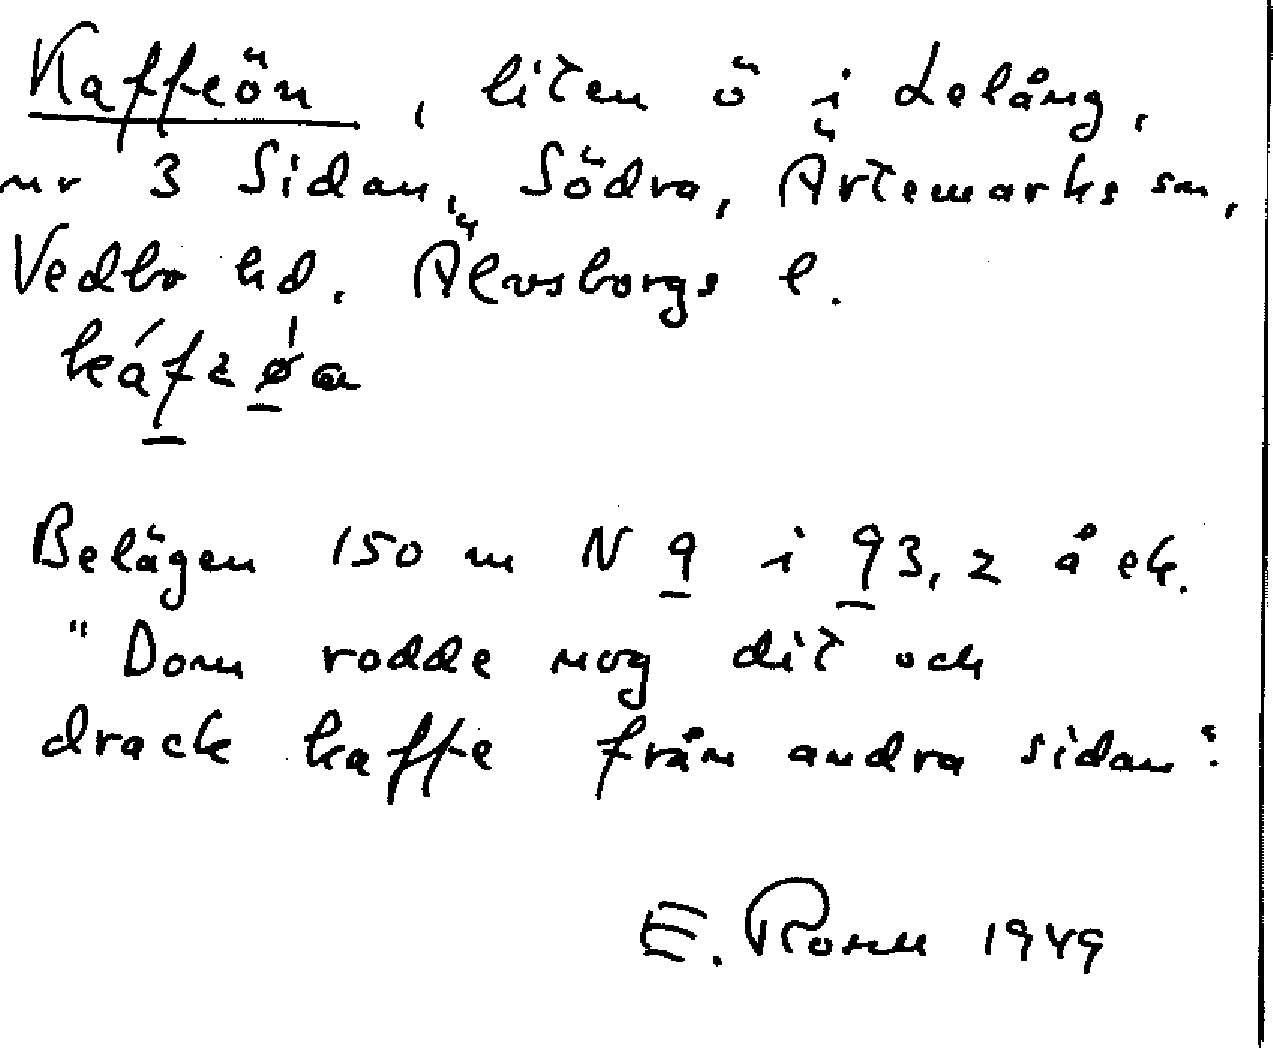 Kaffeön, liten ö i Lelång,
nr 3 Sidan, Södra, Ärtemarks sn,
Vedbo hd, Älvsborgs l.
Belägen 150 m N 9 i 93,2 å ek.
"Dom rodde nog dit och
drack kaffe från andra sidan".
E. Rosell 1949